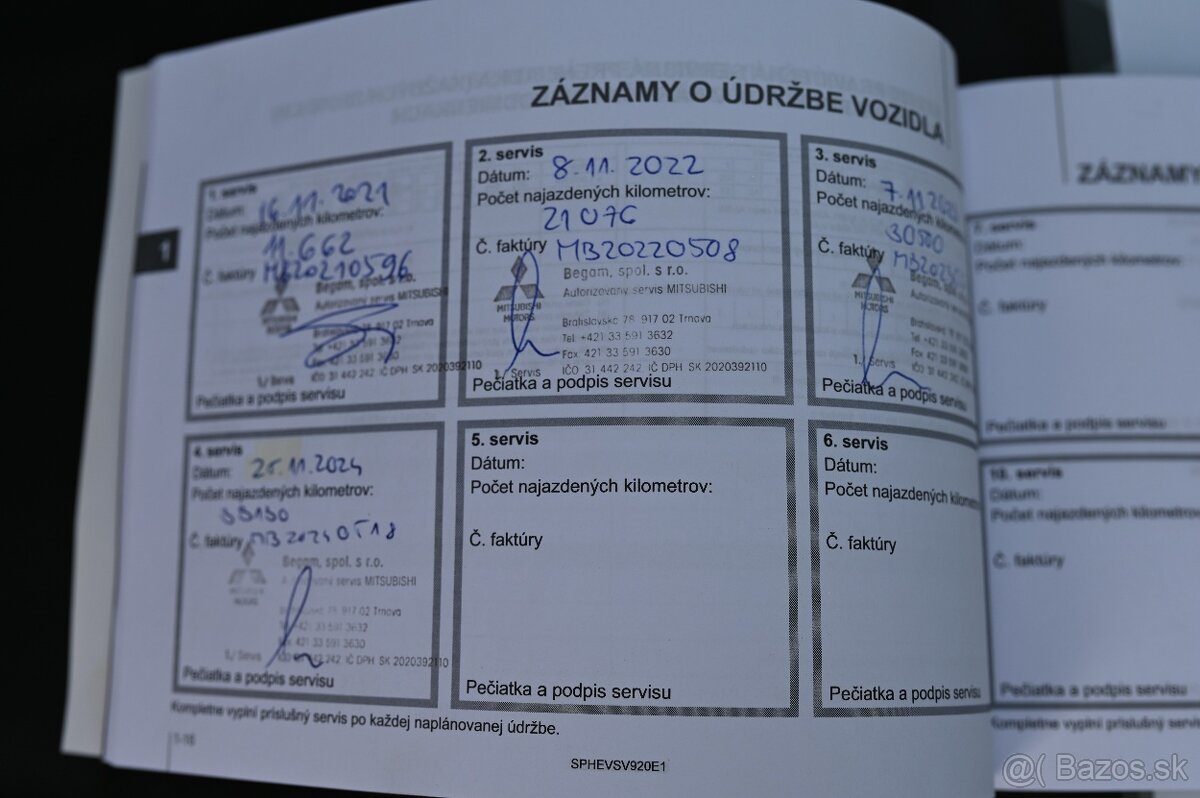 ZÁZNAMY O ÚDRŽBE VOZIDLA
1
1. servis
Dátum: 16.11.2021
Počet najazdených kilometrov:
11.662
Č. faktúry MB20210596
Begam, spol. s r.o.
Autorizovaný servis MITSUBISHI
MITSUBISHI
MOTORS
Bratislavská 78, 917 02 Trnava
Tel. +421 33 591 3632
Fax 421 33 591 3630
IČO 31 442 242 IČ DPH SK 2020392110
1./ Servis
Pečiatka a podpis servisu
2. servis
Dátum: 8.11.2022
Počet najazdených kilometrov:
21076
Č. faktúry MB20220508
Begam, spol. s r.o.
Autorizovaný servis MITSUBISHI
MITSUBISHI
MOTORS
Bratislavská 78, 917 02 Trnava
Tel +421 33 591 3632
Fax 421 33 591 3630
IČO 31 442 242 IČ DPH SK 2020392110
1./ Servis
Pečiatka a podpis servisu
3. servis
Dátum: 7.11
Počet najazdených kilometrov:
30500
Č. faktúry
Begam,
Autorizovaný
MITSUBISHI
MOTORS
Bratislavská
Tel +421 33
Fax 421 33 5
IČO 31 442 242
1./ Servis
Pečiatka a podpis servisu
4. servis
Dátum: 25.11.2024
Počet najazdených kilometrov:
Č. faktúry MB20240518
Begam, spol. s r.o.
servis MITSUBISHI
78, 917 02 Trnava
+421 33 591 3632
421 33 591 3630
242 IČ DPH SK 2020392110
1./ Servis
Pečiatka a podpis servisu
5. servis
Dátum:
Počet najazdených kilometrov:
Č. faktúry
Pečiatka a podpis servisu
6. servis
Dátum:
Počet najazdených kilometrov
Č. faktúry
Pečiatka a podpis servisu
Kompletne vyplní príslušný servis po každej naplánovanej údržbe.
1-16
SPHEVSV920E1
ZÁZNAMY
7. servis
Dátum:
Počet najazdených kilometrov:
Č. faktúry
Pečiatka a podpis servisu
10. servis
Dátum:
Počet najazdených kilometrov
Č. faktúry
Pečiatka a podpis servisu
Kompletne vyplní príslušný servis
@( Bazos.sk